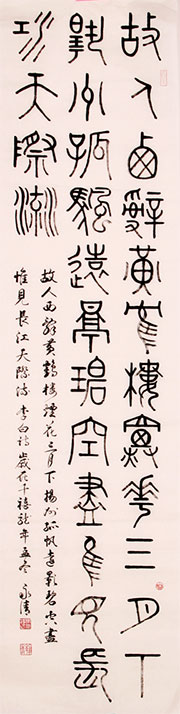 故人西辭黃鶴樓煙華三月下
揚州孤帆遠景碧空盡隹見長
江天際流
故人西辭黃鶴樓煙花三月下揚州孤帆遠影碧空盡
惟見長江天際流 李白詩 歲在千禧龍年孟冬 永清